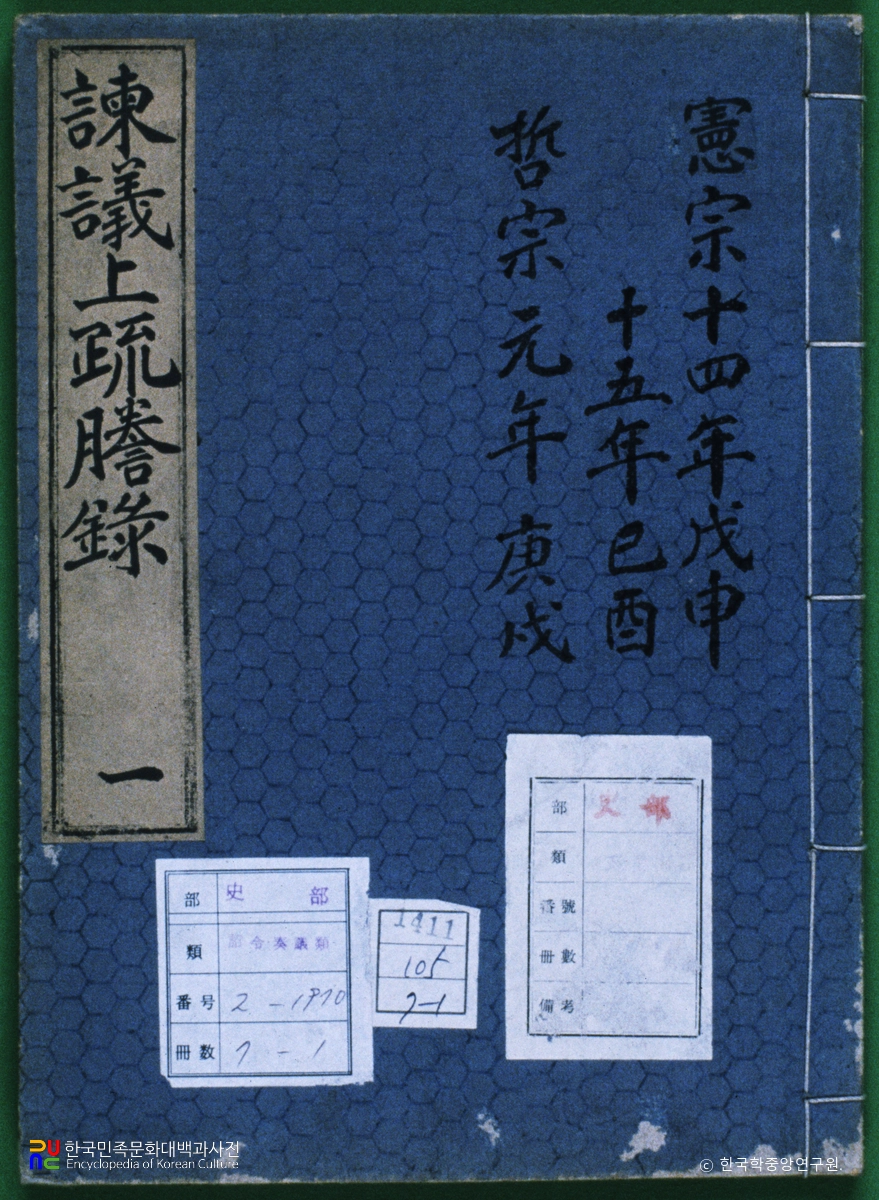 憲宗十四年戊申
十五年己酉
哲宗元年庚戌
諫議上疏謄錄 一
部 史部
類
番號
冊數
備考
部 史部
類 詔令奏議類
番号 2-1970
冊数 7-1
1411
105
7-1
한국민족문화대백과사전
Encyclopedia of Korean Culture
© 한국학중앙연구원.